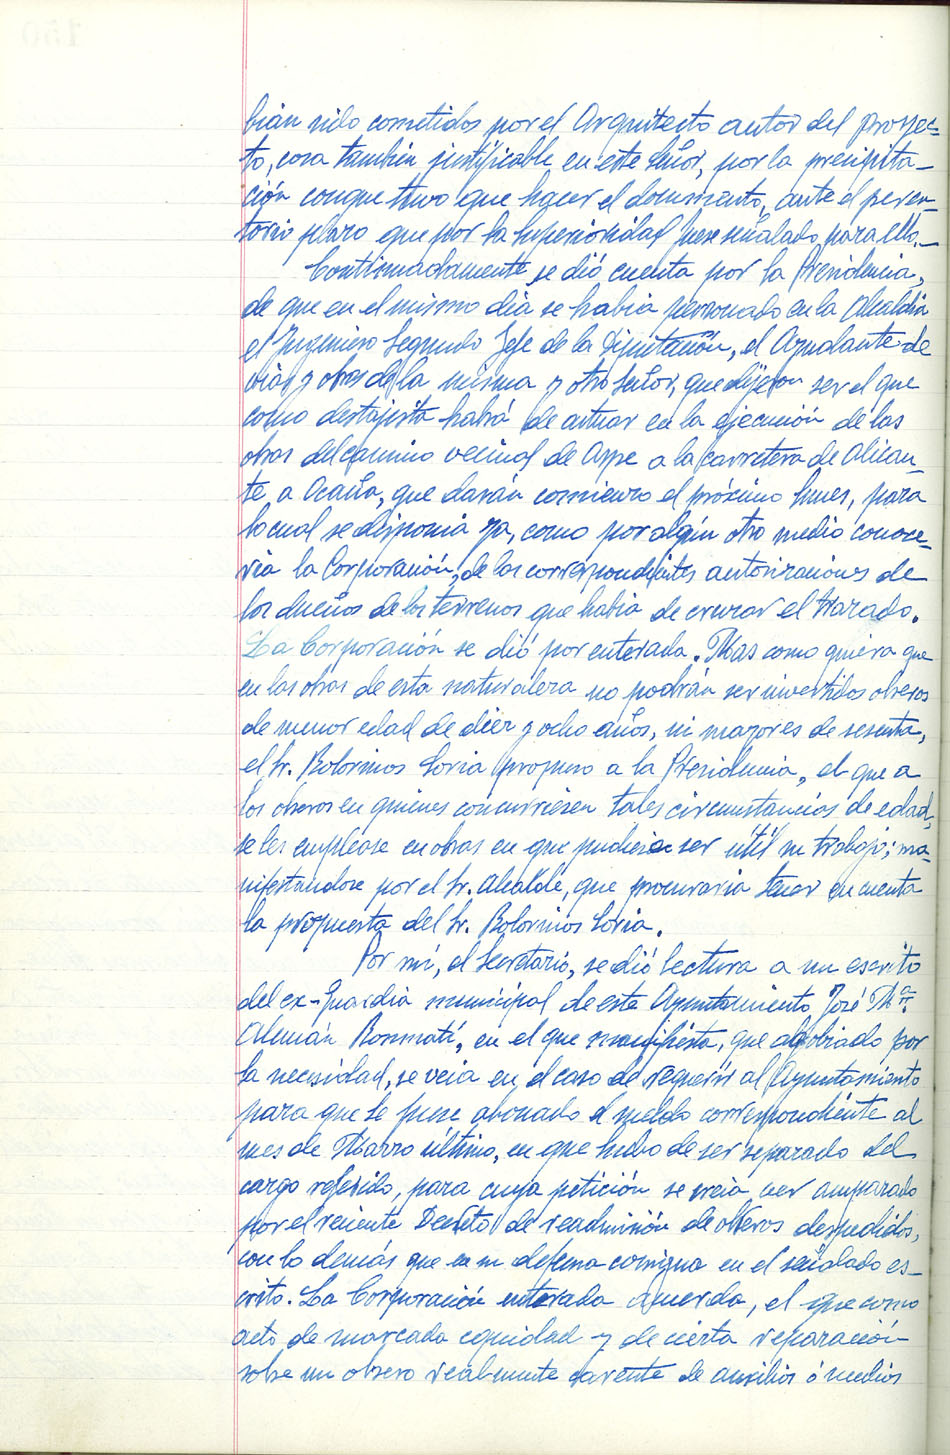 bían sido cometidos por el Arquitecto autor del proyec-
to, cosa también justificable en este Señor, por la precipita-
ción conque tuvo que hacer el documento, ante el peren-
torio plazo que por la Superioridad fuese señalado para ello.-
Continuadamente se dió cuenta por la Presidencia,
de que en el mismo día se había personado en la Alcaldía
el Ingeniero Segundo Jefe de la Diputación, el Ayudante de
vías y obras de la misma y otro Señor, que dijeron ser el que
como destajista habrá de actuar en la ejecución de las
obras del camino vecinal de Aspe a la carretera de Alican-
te, a Ocaña, que darán comienzo el próximo lunes, para
lo cual se disponía ya, como por algún otro medio conoce-
ría la Corporación, de las correspondientes autorizaciones de
los dueños de los terrenos que había de cruzar el trazado.
La Corporación se dió por enterada. Mas como quiera que
en las obras de esta naturaleza no podrán ser invertidos obreros
de menor edad de diez y ocho años, ni mayores de sesenta,
el Sr. Bolorinos Soria propuso a la Presidencia, el que a
los obreros en quienes concurriesen tales circunstancias de edad,
se les emplease en obras en que pudiera ser útil su trabajo; ma-
nifestandose por el Sr. Alcalde, que procuraría tener en cuenta
la propuesta del Sr. Bolorinos Soria.
Por mí, el Secretario, se dió lectura a un escrito
del ex-Guardia municipal de este Ayuntamiento, José Mª
Alemán Bonmatí, en el que manifiesta, que agobiado por
la necesidad, se veía en el caso de requerir al Ayuntamiento
para que le fuese abonado el sueldo correspondiente al
mes de Marzo último, en que hubo de ser separado del
cargo referido, para cuya petición se creía ver amparado
por el reciente Decreto de readmisión de obreros despedidos,
con lo demás que en su defensa consigna en el señalado es-
crito. La Corporación enterada acuerda, el que como
acto de marcada equidad y de cierta reparación
sobre un obrero realmente carente de auxilios ó medios